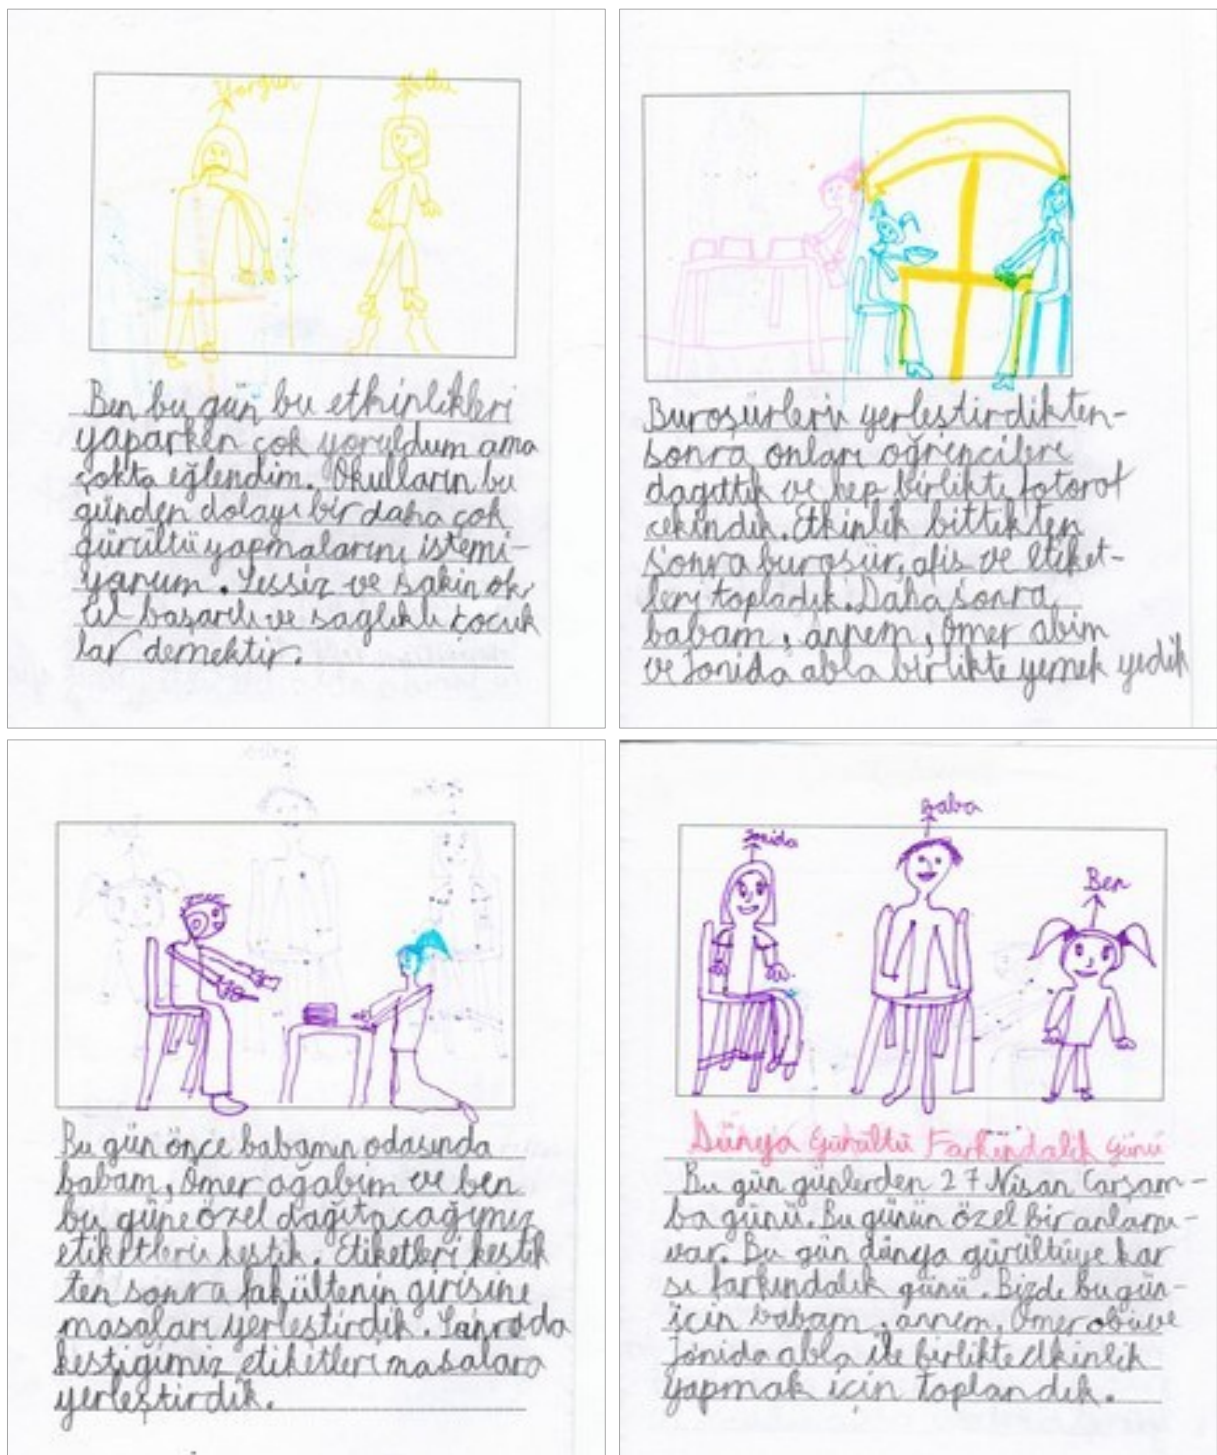 Yorgun
Mutlu
Ben bu gün bu etkinlikleri
yaparken çok yoruldum ama
çokta eğlendim. Okulların bu
günden dolayı bir daha çok
gürültü yapmalarını istemi-
yorum. Sessiz ve sakin ok-
ul başarılı ve saglıklı çocuk
lar demektir.
Buroşürleri yerleştirdikten-
sonra onları oğrencilere
dagıttık ve hep birlikte fotorof
cekindik. Etkinlik bittikten
sonra buroşür, afis ve etiket-
leri topladık. Daha sonra
babam, annem, Ömer abim
ve Jonida abla birlikte yemek yedik
Bu gün önce babamın odasında
babam, Ömer ağabim ve ben
bu güne özel dağıtacağımız
etiketleri kestik. Etiketleri kestik
ten sonra fakültenin girisine
masaları yerleştirdik. Sonra da
kestiğimiz etiketleri masalara
yerleştirdik.
Jonida
Baba
Ben
Dünya Gürültü Farkındalık Günü
Bu gün günlerden 27 Nisan Carşam-
ba günü. Bu günün özel bir anlamı-
var. Bu gün dünya gürültüye kar
sı farkındalık günü. Bizde bu gün-
icin babam, annem, Ömer abi ve
Jonida abla ile birlikte etkinlik
yapmak için toplandık.